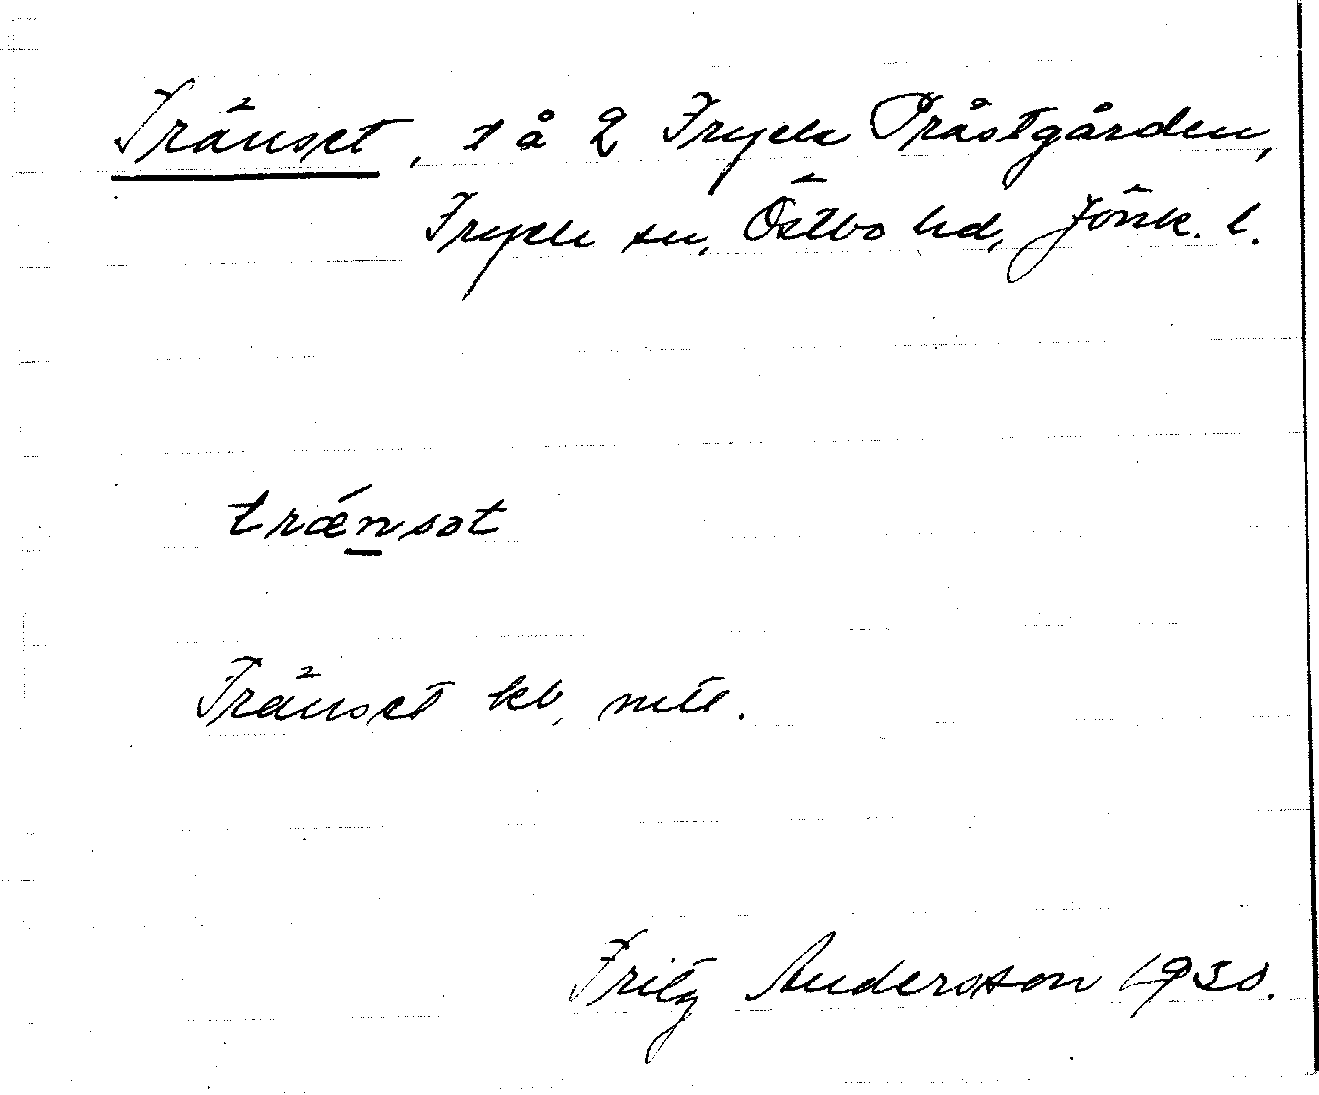 Tränset, t å 2 Tryck Prästgården,
Tryck sn, Östbo hd, Jönk. l.
trǽnsət
Tränset kb, mtl.
Fritz Andersson 1930.